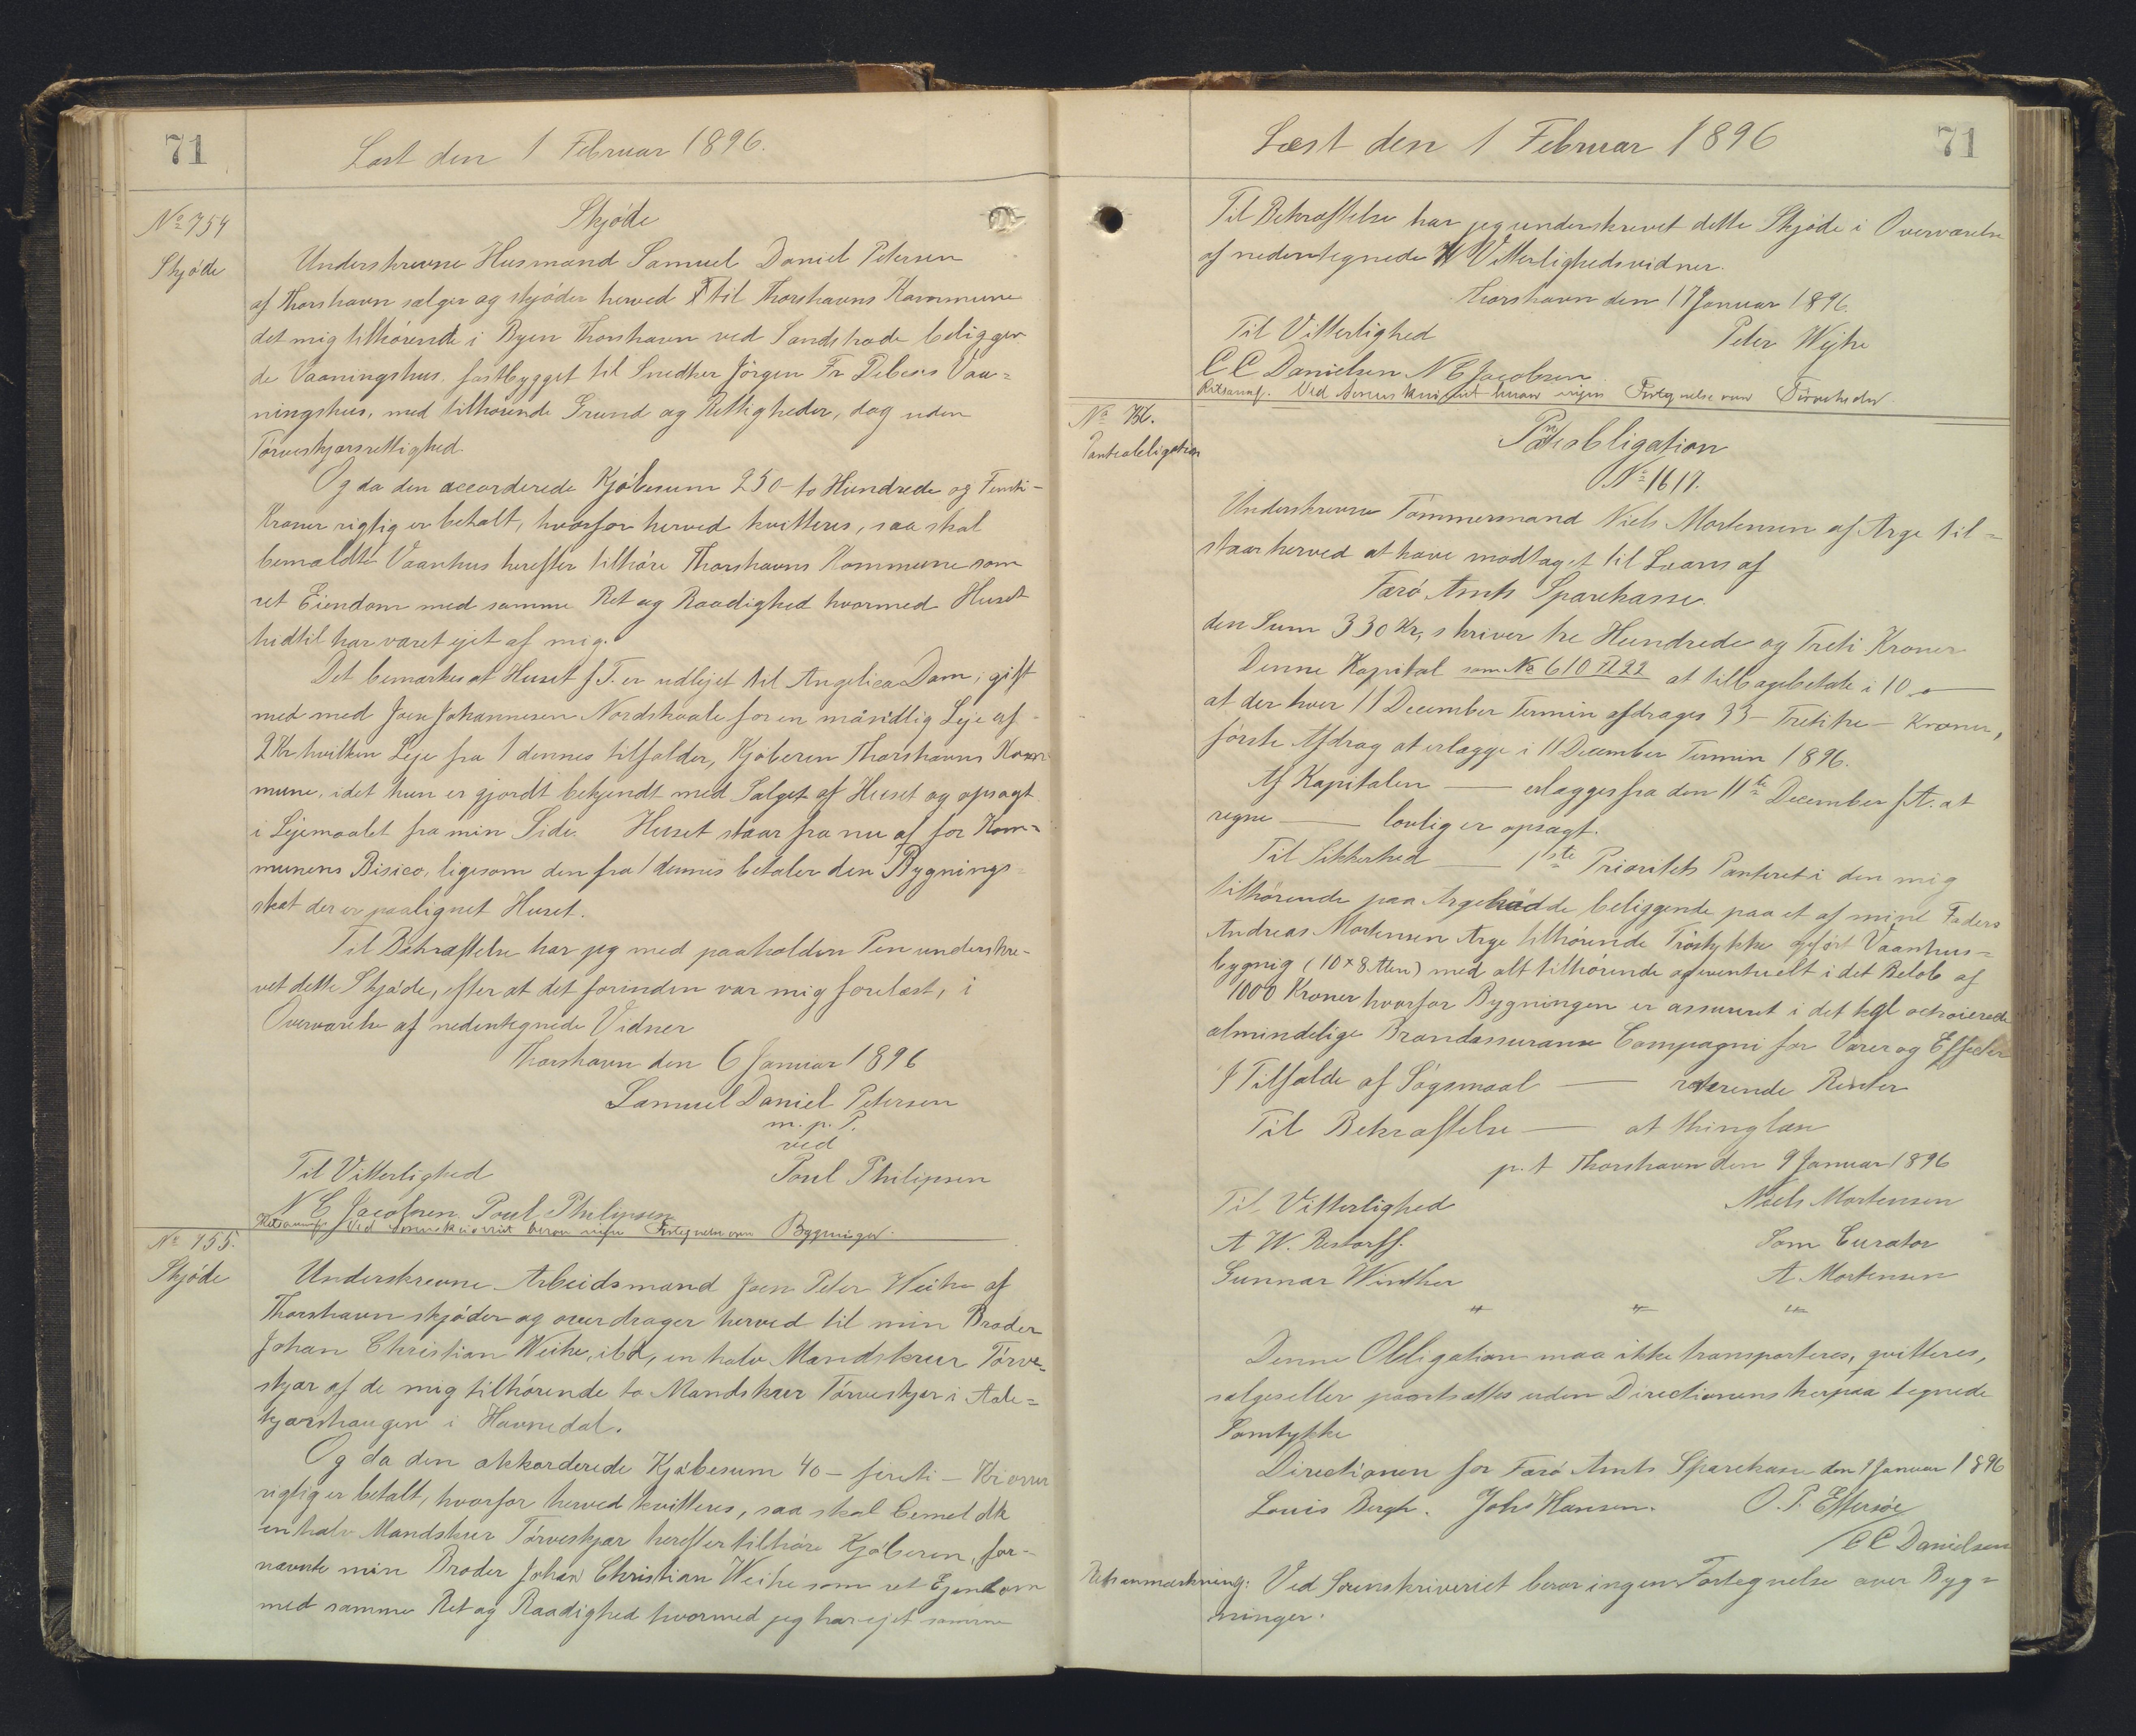 71
Læst den 1 Februar 1896.
No 754
Skjøde
Skjøde
Underskrevne Husmand Samuel Daniel Petersen
af Thorshavn sælger og skjøder herved til Thorshavns Kommune
det mig tilhørende i Byen Thorshavn ved Sandstrade beliggen
de Vaaningshus, fastbygget til Snedker Jørgen Fr Debess Vaa=
ningshus, med tilhørende Grund og Rettigheder, dog uden
Tørveskjærsrettighed.
Og da den accorderede Kjøbesum 250 - to Hundrede og Femti -
Kroner rigtig er betalt, hvorfor herved kvitteres, saa skal
bemældte Vaanhus herefter tilhøre Thorshavns Kommune som
ret Eiendom med samme Ret og Raadighed hvormed Huset
hidtil har været ejet af mig.
Det bemærkes at Huset f. T. er udlejet til Angelica Dam, gift
med med Joen Johannesen Nordskaale for en månidlig Leje af
2 Kr hvilken Leje fra 1 dennes tilfalder, Kjøberen Thorshavns Kom
mune, idet hun er gjordt bekjendt med Salget af Huset og opsagt
i Lejemaalet fra min Side. Huset staar fra nu af for Kom=
munens Risico, ligesom den fra 1 dennes betaler den Bygnings=
skat der er paalignet Huset.
Til Bekræftelse har jeg med paaholden Pen underskre-
vet dette Skjøde, efter at det forinden var mig forelæst, i
Overværelse af nedentegnede Vidner
Thorshavn den 6 Januar 1896
Samuel Daniel Petersen
m. p. P.
ved
Til Vitterlighed Poul Philipsen
N E Jacobsen Poul Philipsen
Retsanmf Ved Sorenskriveriet beror ingen Fortegnelse over Bygninger.
No 755.
Skjøde
Underskrevne Arbeidsmand Joen Peter Weihe af
Thorshavn skjøder og overdrager herved til min Broder
Johan Christian Weihe, ibd, en halv Mandskrur Tørve=
skjær af de mig tilhørende to Mandskrur Tørveskjær i
kjærshaugen i Havnedal.
Og da den akkorderede Kjøbesum 40 - fireti - Kroner
rigtig er betalt, hvorfor herved kvitteres, saa skal bemeldte
en halv Mandskrur Tørveskjær herefter tilhøre Kjøberen, for-
nævnte min Broder Johan Christian Weihe som ret Ejendom
med samme Ret og Raadighed hvormed jeg har ejet samme
Læst den 1 Februar 1896
71
Til Bekræftelse har jeg underskrevet dette Skjøde i Overværelse
af nedentegnede Vitterlighedsvidner.
Thorshavn den 17 Januar 1896.
Til Vitterlighed Peter Weihe
C C Danielsen N E Jacobsen
Retsanmf. Ved Sorenskriveriet beror ingen Fortegnelse over
No
Panteobligation
Panteobligation
No 1617.
Underskrevne Tømmermand Niels Mortensen af Arge til=
staar herved at have modtaget til Laans af
Færø Amts Sparekasse
den Sum 330 Kr, skriver tre Hundrede og Treti Kroner
Denne Kapital som No 610 II 22 at tilbagebetale i 10 —
at der hver 11 December Termin afdrages 33 - Tretitre - Kroner,
første Afdrag at erlægge i 11 December Termin 1896.
Af Kapitalen — erlægges fra den 11te December f. A. at
regne — lovlig er opsagt.
Til Sikkerhed — 1ste Prioritets Panteret i den mig
tilhørende paa beliggende paa et af mine Faders
Andreas Mortensen Arge tilhørende Trøstykke opført Vaanhus=
bygnig (10 x 8 Alen) med alt tilhørende og eventuelt i det Beløb af
1000 Kroner hvorfor Bygningen er assureret i det kgl octroierede
almindelige Brandassurance Compagni for Varer og Effecter
I Tilfælde af Søgsmaal — resterende Renter
Til Bekræftelse — at thinglæse
p. t Thorshavn den 9 Januar 1896
Til Vitterlighed Niels Mortensen
A W. Restorff. Som Curator
Gunnar Winther A Mortensen
" " "
Denne Obligation maa ikke transporteres, qvitteres,
sælges eller pantsættes uden Directionens herpaa tegnede
Samtykke
Directionen for Færø Amts Sparekasse den 9 Januar 1896
Louis Bergh. Johs Hansen. O. P. Effersøe
C C Danielsen
Retsanmærkning: Ved Sorenskriveriet beror ingen Fortegnelse over Byg=
ninger.